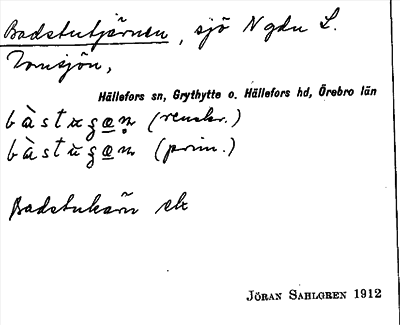 Badstutjärnen, sjö N gdn L.
Tomsjön,
Hällefors sn, Grythytte o. Hällefors hd, Örebro län
(renskr.)
(prim.)
Badstukärn
JÖRAN SAHLGREN 1912